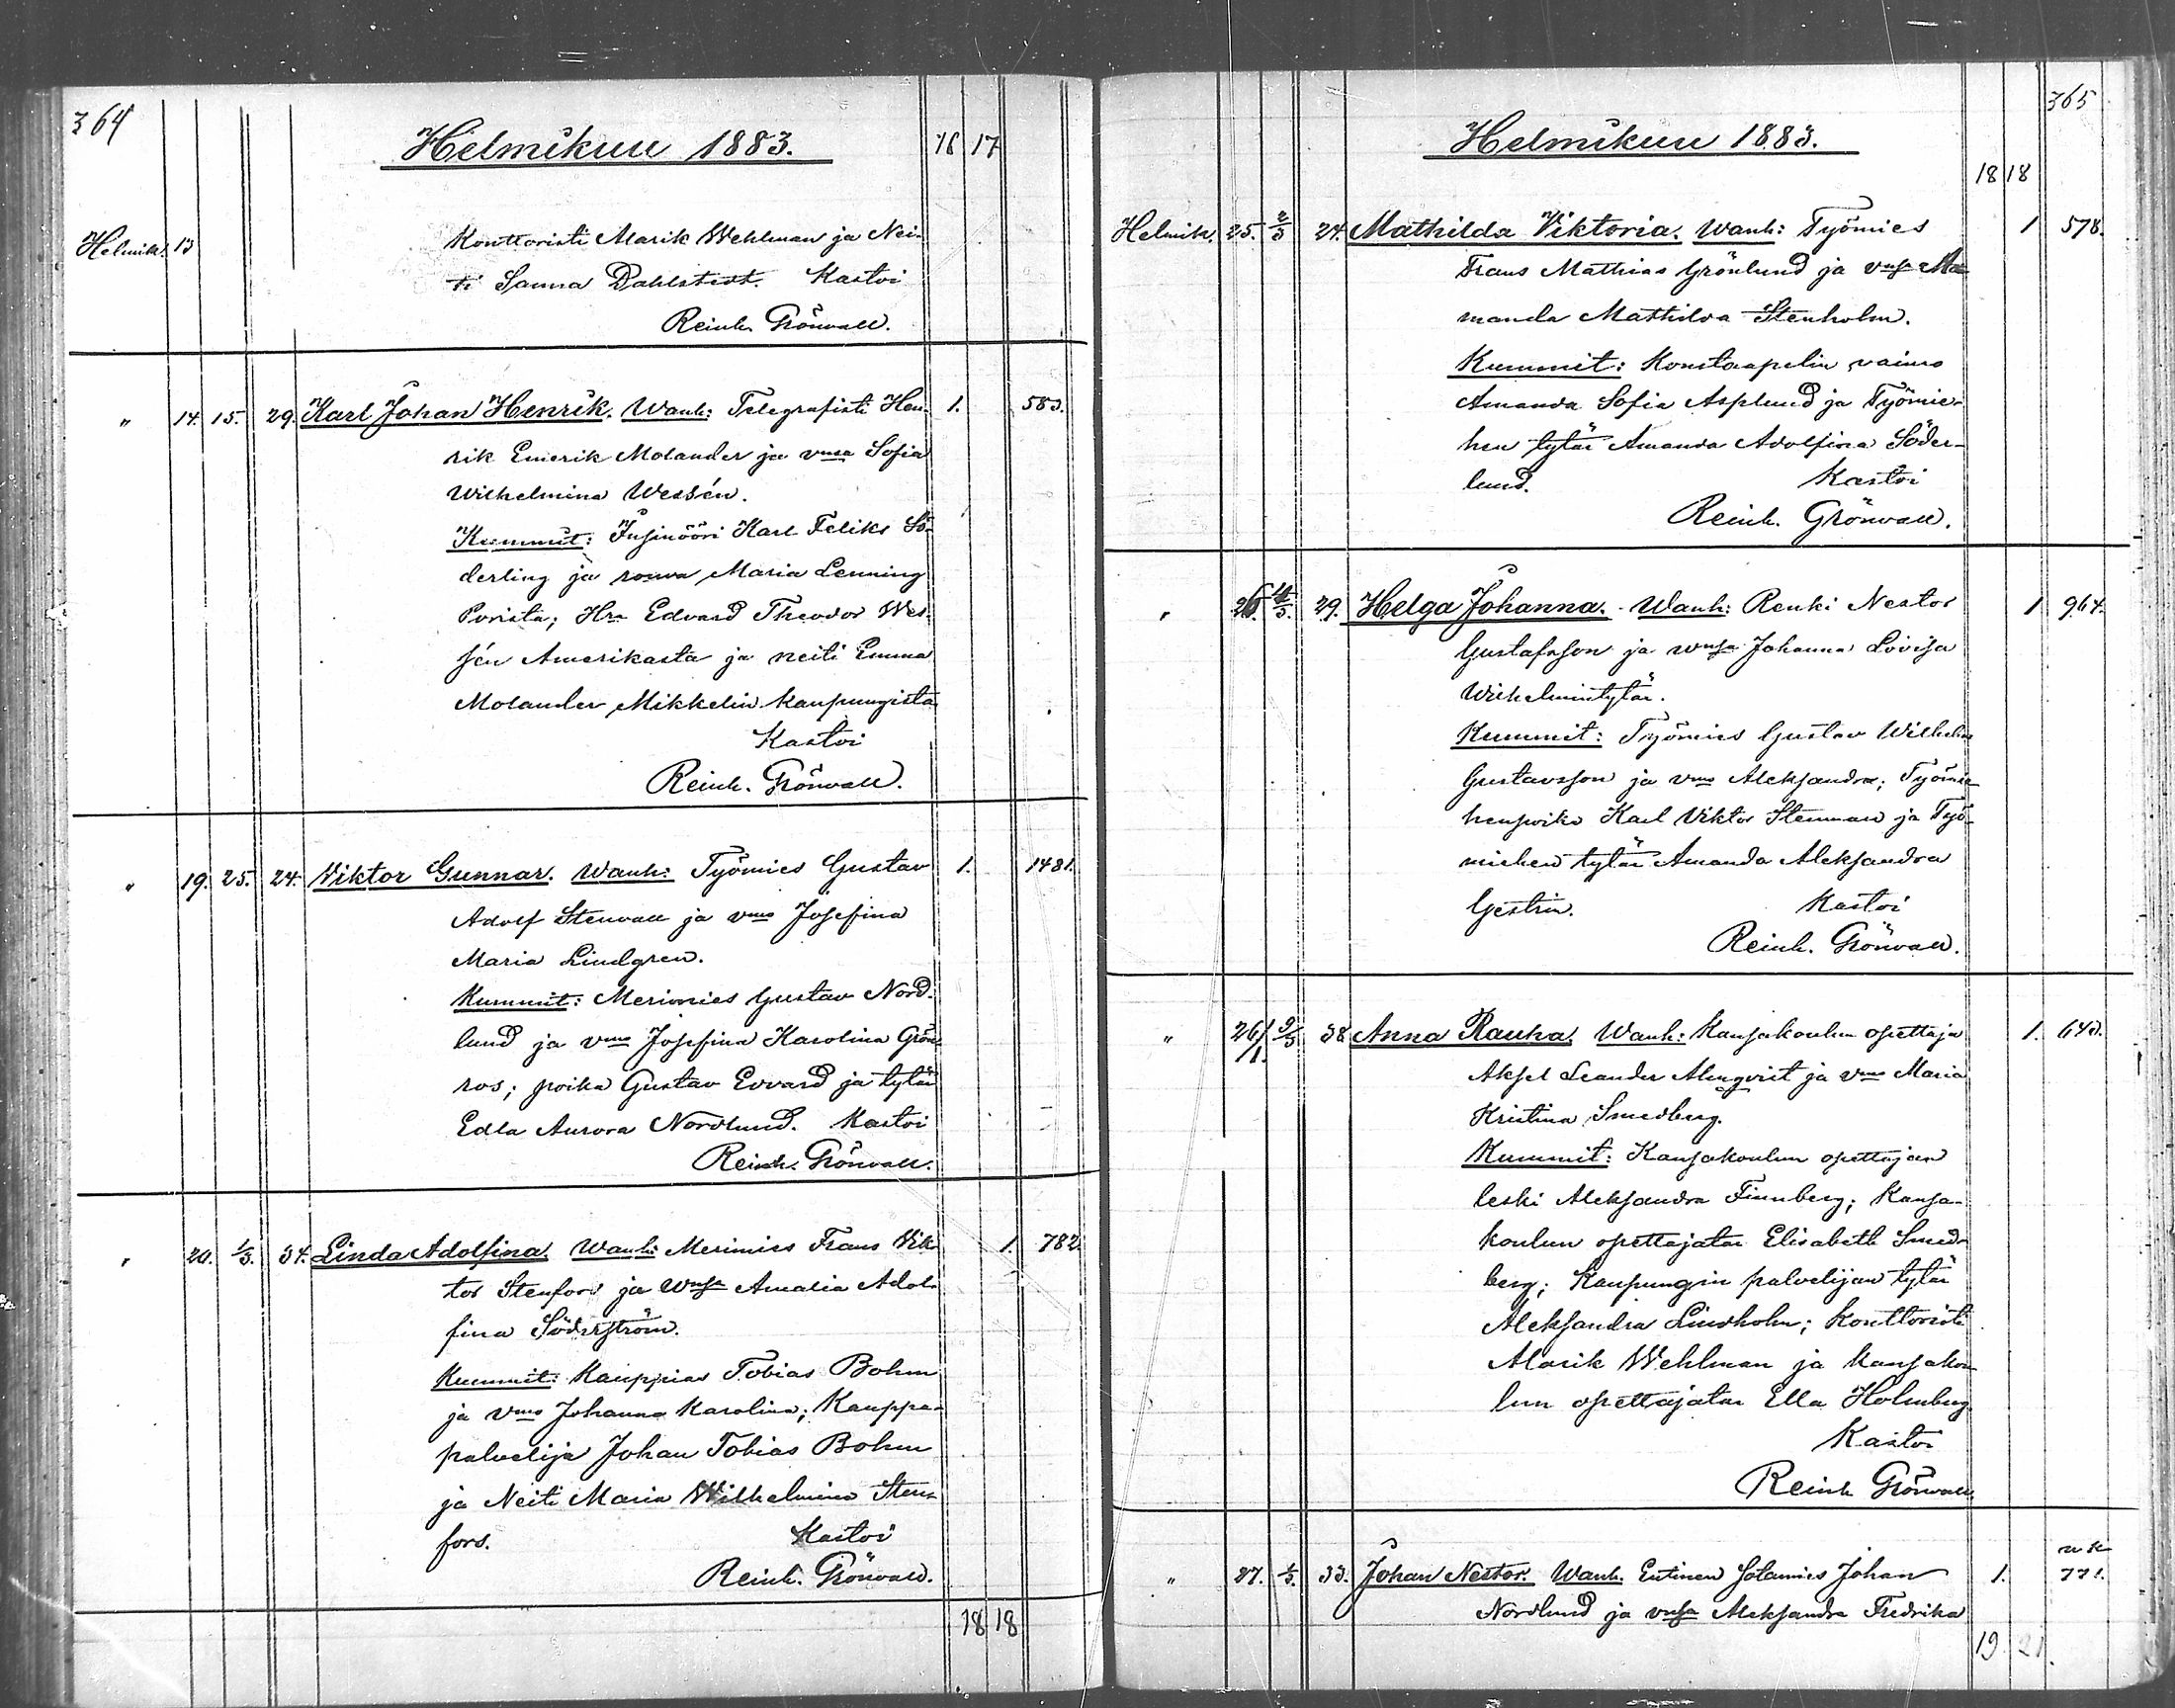 364
Helmikuu 1883.
16 17
Helmik. 13 Konttoristi Alarik Wehlman ja Nei-
ti Sanna Dahlstedt. Kastoi
Reinh. Grönvall.
" 14. 15. 29. Karl Johan Henrik. Wanh: Telegrafisti Hen- 1. 583.
rik Emerik Molander ja vmsa Sofia
Wilhelmina Wessén.
Kummit: Insinööri Karl Feliks Sö-
derling ja rouva Maria Lenning
Porista; Hra Edvard Theodor Wes-
sén Amerikasta ja neiti Emma
Molander Mikkelin kaupungista
Kastoi
Reinh. Grönvall.
" 19. 25. 24. Viktor Gunnar. Wanh: Työmies Gustav 1. 1481.
Adolf Stenvall ja vmo Josefina
Maria Lindgren.
Kummit: Merimies Gustav Nord-
lund ja vmo Josefina Karolina Grön-
ros; poika Gustav Edvard ja tytär
Edla Aurora Nordlund. Kastoi
Reinh. Grönvall.
" 20. 1/3. 34. Linda Adolfina. Wanh: Merimies Frans Vik- 1. 782.
tor Stenfors ja vmsa Amalia Adol-
fina Söderström.
Kummit: Kauppias Tobias Bohm
ja vmo Johanna Karolina; Kauppa-
palvelija Johan Tobias Bohm
ja Neiti Maria Wilhelmina Sten-
fors. Kastoi
Reinh. Grönvall.
18 18
365
Helmikuu 1883.
18 18
Helmik. 25. 2/3 24. Mathilda Viktoria. Wanh: Työmies 1 578.
Frans Mathias Grönlund ja vmsa A-
manda Mathilda Stenholm.
Kummit: Konstaapelin vaimo
Amanda Sofia Asplund ja Työmie-
hen tytär Amanda Adolfina Söder-
lund. Kastoi
Reinh. Grönvall.
" 26. /3. 29. Helga Johanna. Wanh: Renki Nestor 1 964.
Gustafsson ja vmsa Johanna Lovisa
Wilhelmintytär.
Kummit: Työmies Gustav Wilhelm
Gustavsson ja vmo Aleksandra; Työmie-
henpoika Karl Viktor Stenman ja Työ-
miehen tytär Amanda Aleksandra
Gestrin. Kastoi
Reinh. Grönvall.
" 26/1. 9/3 38. Anna Rauha. Wanh: Kansakoulun opettaja 1. 643.
Aksel Leander Almqvist ja vmo Maria
Kristina Smedberg.
Kummit: Kansakoulun opettajan
leski Aleksandra Finnberg; Kansa-
koulun opettajatar Elisabeth Smed-
berg; Kaupungin palvelijan tytär
Aleksandra Lindholm; Konttoristi
Alarik Wehlman ja kansakou-
lun opettajatar Ella Holmberg
Kastoi
Reinh Grönvall.
" 27. 1/3. 33. Johan Nestor. Wanh. Entinen Sotamies Johan 1. 771.
Nordlund ja vmsa Aleksandra Fredrika
19 21.